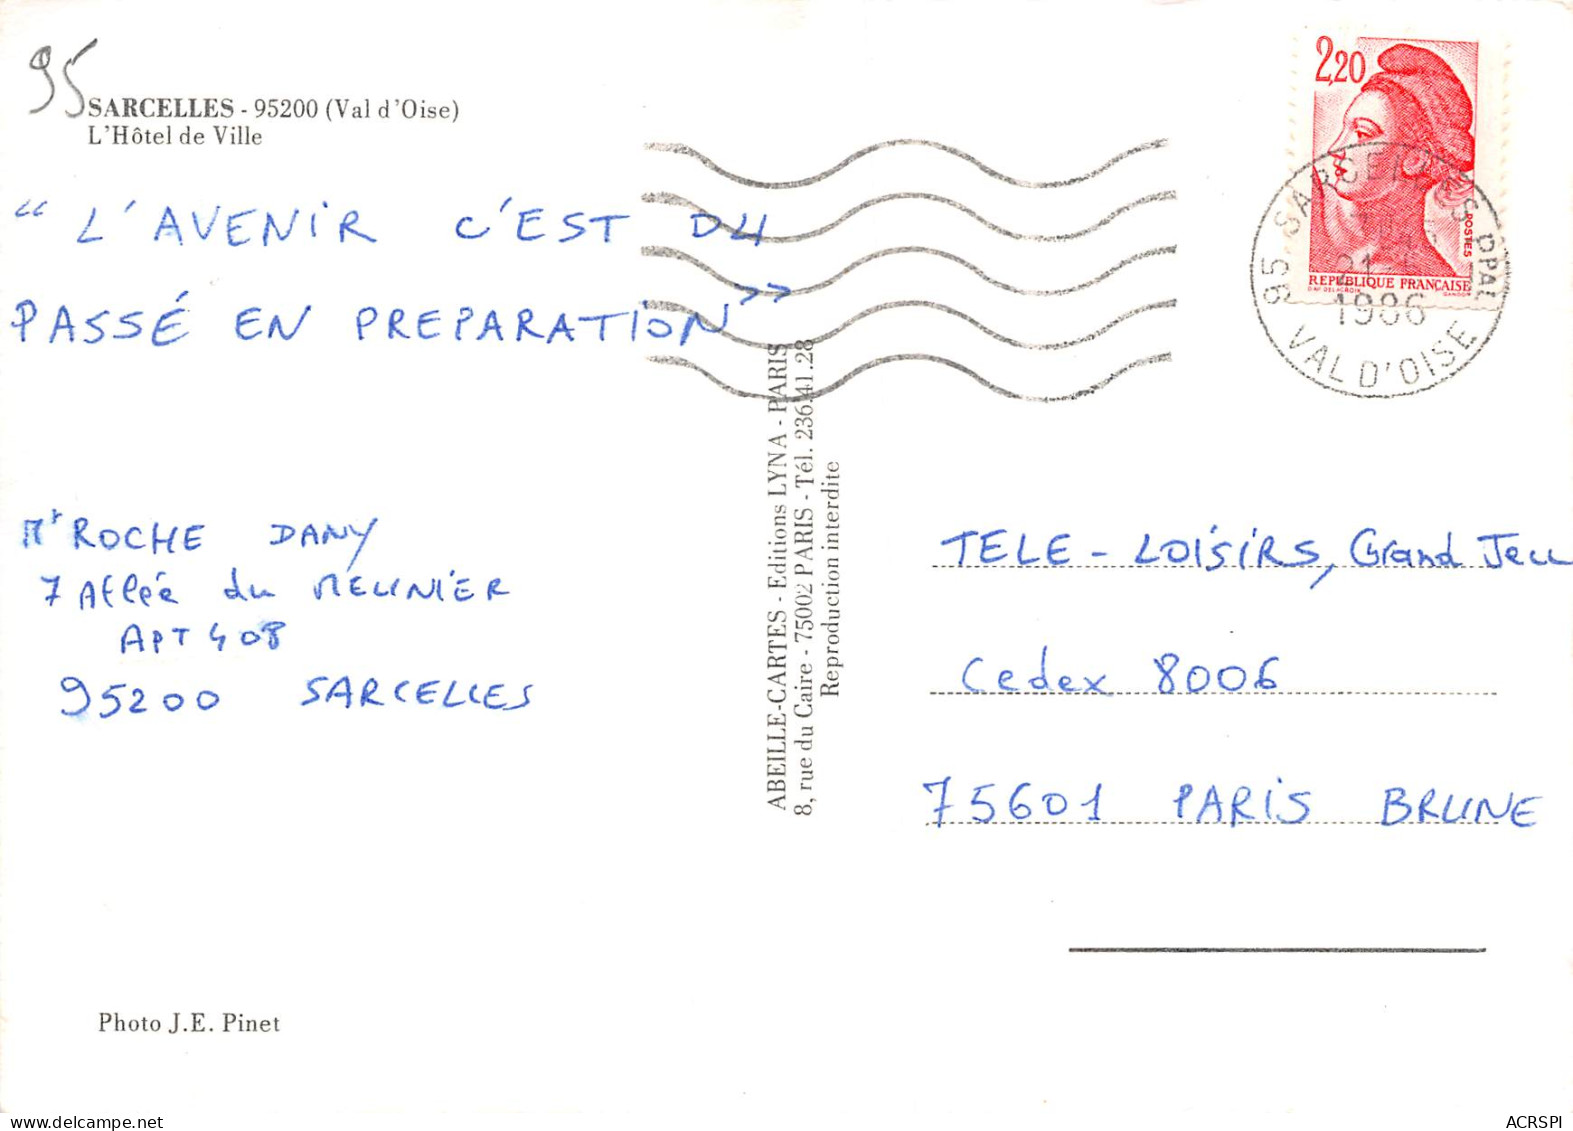 95
SARCELLES - 95200 (Val d'Oise)
L'Hôtel de Ville
“ L'AVENIR C'EST DU
PASSÉ EN PREPARATION”
Mr ROCHE DANY
7 Allée du MEUNIER
APT 408
95200 SARCELLES
Photo J.E. Pinet
ABEILLE-CARTES - Editions LYNA - PARIS
8, rue du Caire - 75002 PARIS - Tél. 236.41.28
Reproduction interdite
2,20
POSTES
REPUBLIQUE FRANÇAISE
D'AP. DELACROIX GANDON
95 SARCELLES PPAL
21
1986
VAL D'OISE
TELE - LOISIRS, Grand Jeu
Cedex 8006
75601 PARIS BRUNE
delcampe.net
ACRSPI